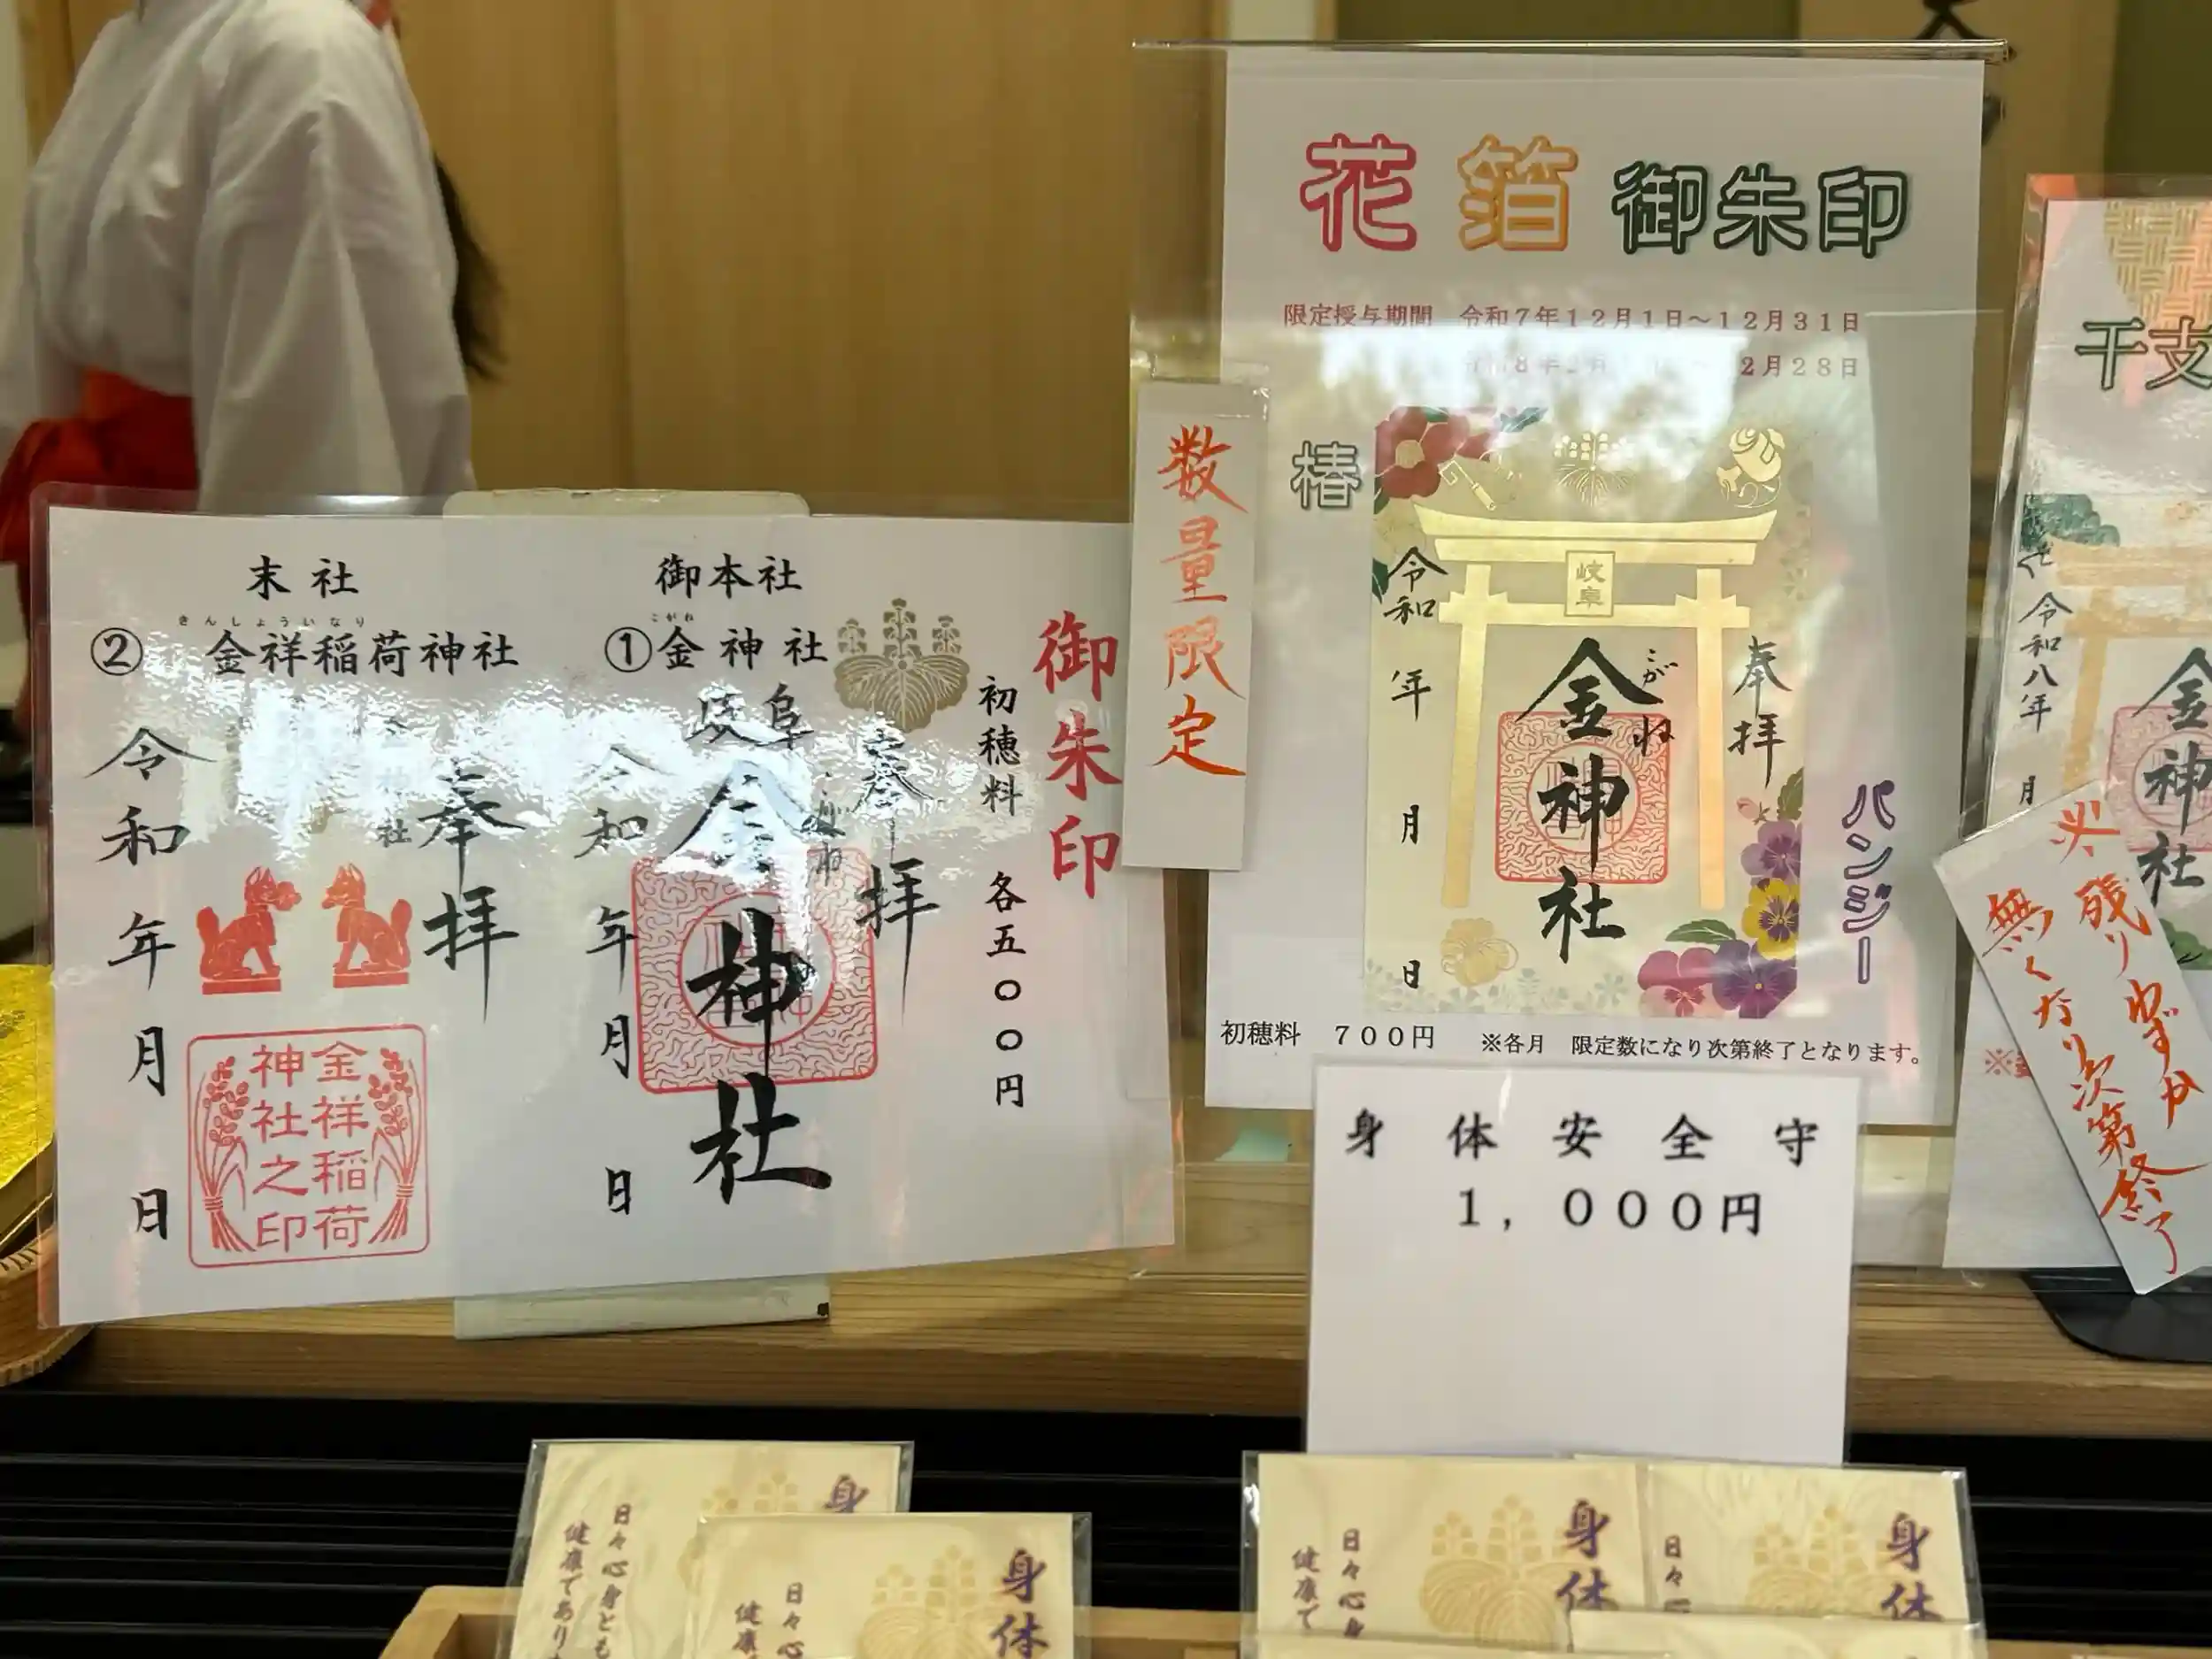 御朱印
初穂料 各五〇〇円
御本社
こがね
①金神社
岐阜
奉拝
こがね
金神社
令和 年 月 日
末社
きんしょういなり
②金祥稲荷神社
奉拝
令和 年 月 日
金祥稲荷
神社之印
花箔御朱印
限定授与期間 令和7年12月1日～12月31日
2月28日
数量限定
椿
パンジー
岐阜
奉拝
こがね
金神社
令和 年 月 日
初穂料 700円 ※各月 限定数になり次第終了となります。
干支
令和八年 月
金神社
※残りわずか
無くなり次第終了
身体安全守
1,000円
身
日々心身とも
健康であり
身体
日々心
健康
身体
日々心身
健康で
身体
日々心